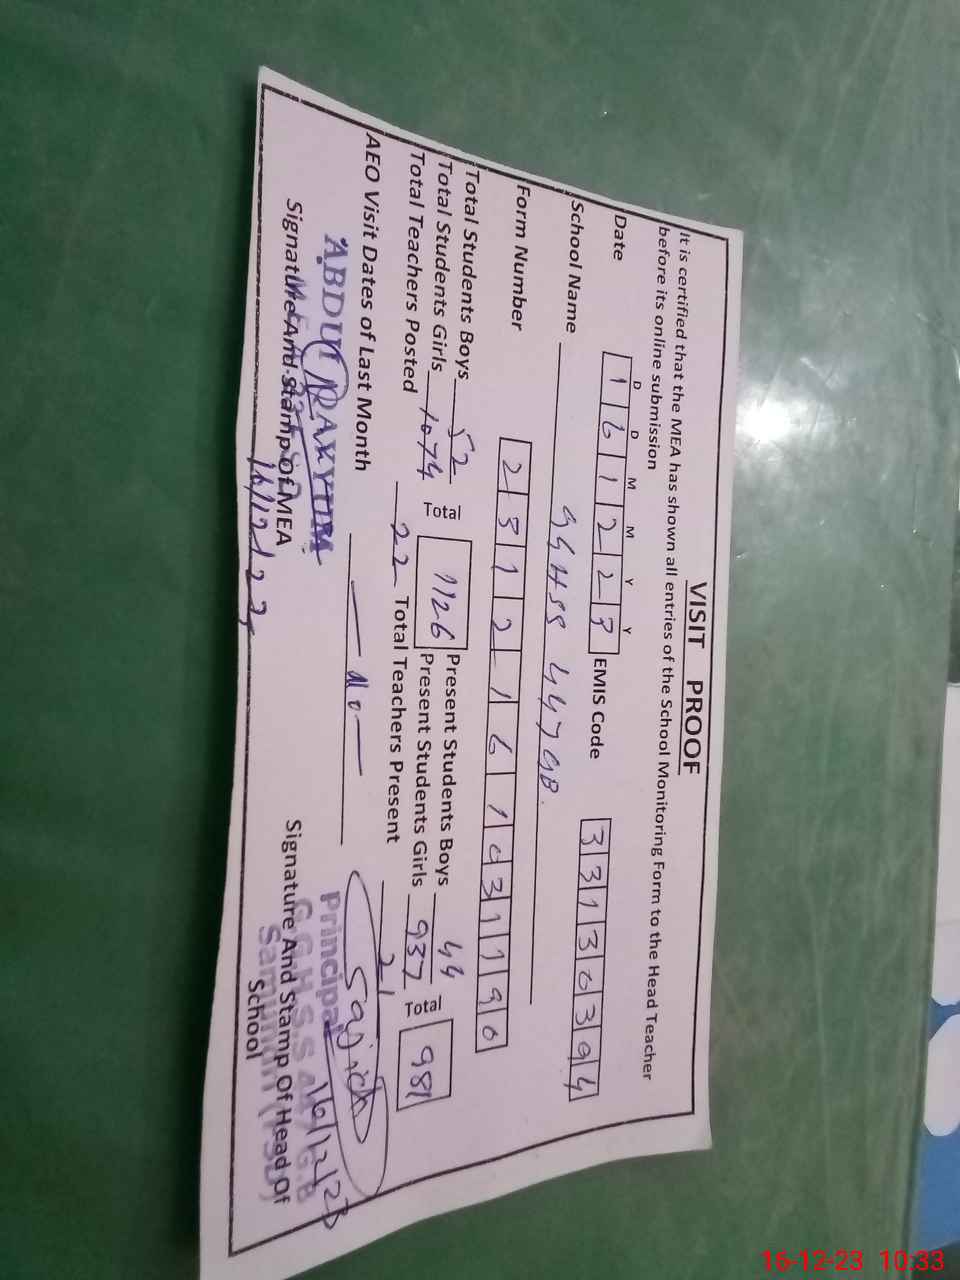 VISIT PROOF
It is certified that the MEA has shown all entries of the School Monitoring Form to the Head Teacher
before its online submission
D D M M Y Y
Date 1 6 1 2 2 3 EMIS Code 3 3 1 3 0 3 9 4
School Name GGHSS 447 GB.
Form Number 2 3 1 2 1 6 1 0 3 1 1 9 6
Total Students Boys 52 Total 1126 Present Students Boys 44 Total 981
Total Students Girls 1074 Present Students Girls 937
Total Teachers Posted 22 Total Teachers Present 21
AEO Visit Dates of Last Month — No —
ABDUL
Principal
G.G.H.S.S 447 G.B
Signature And Stamp Of MEA Signature And Stamp Of Head Of
School
16/12/23 16/12/23
16-12-23 10:33